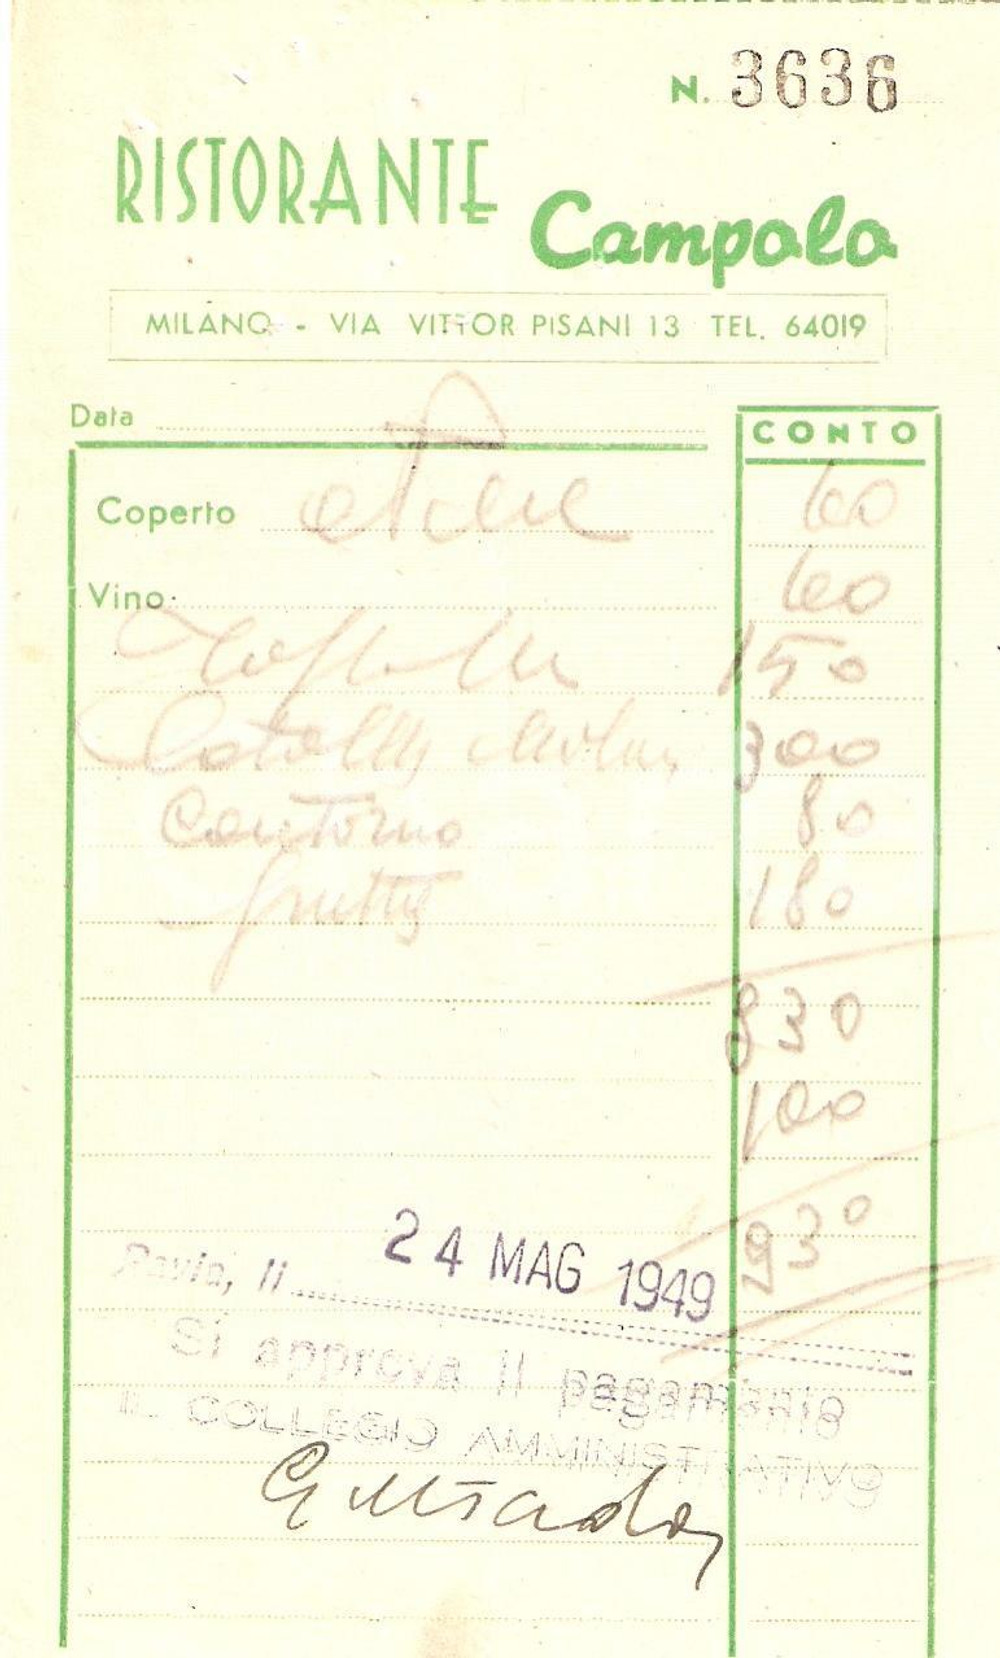 N. 3636
RISTORANTE Campolo
MILANO - VIA VITTOR PISANI 13 TEL. 64019
Data
CONTO
Coperto e Pane 60
Vino 60
150
300
Contorno 80
frutta 180
830
100
930
Pavia, li 24 MAG 1949
Si approva il pagamento
IL COLLEGIO AMMINISTRATIVO